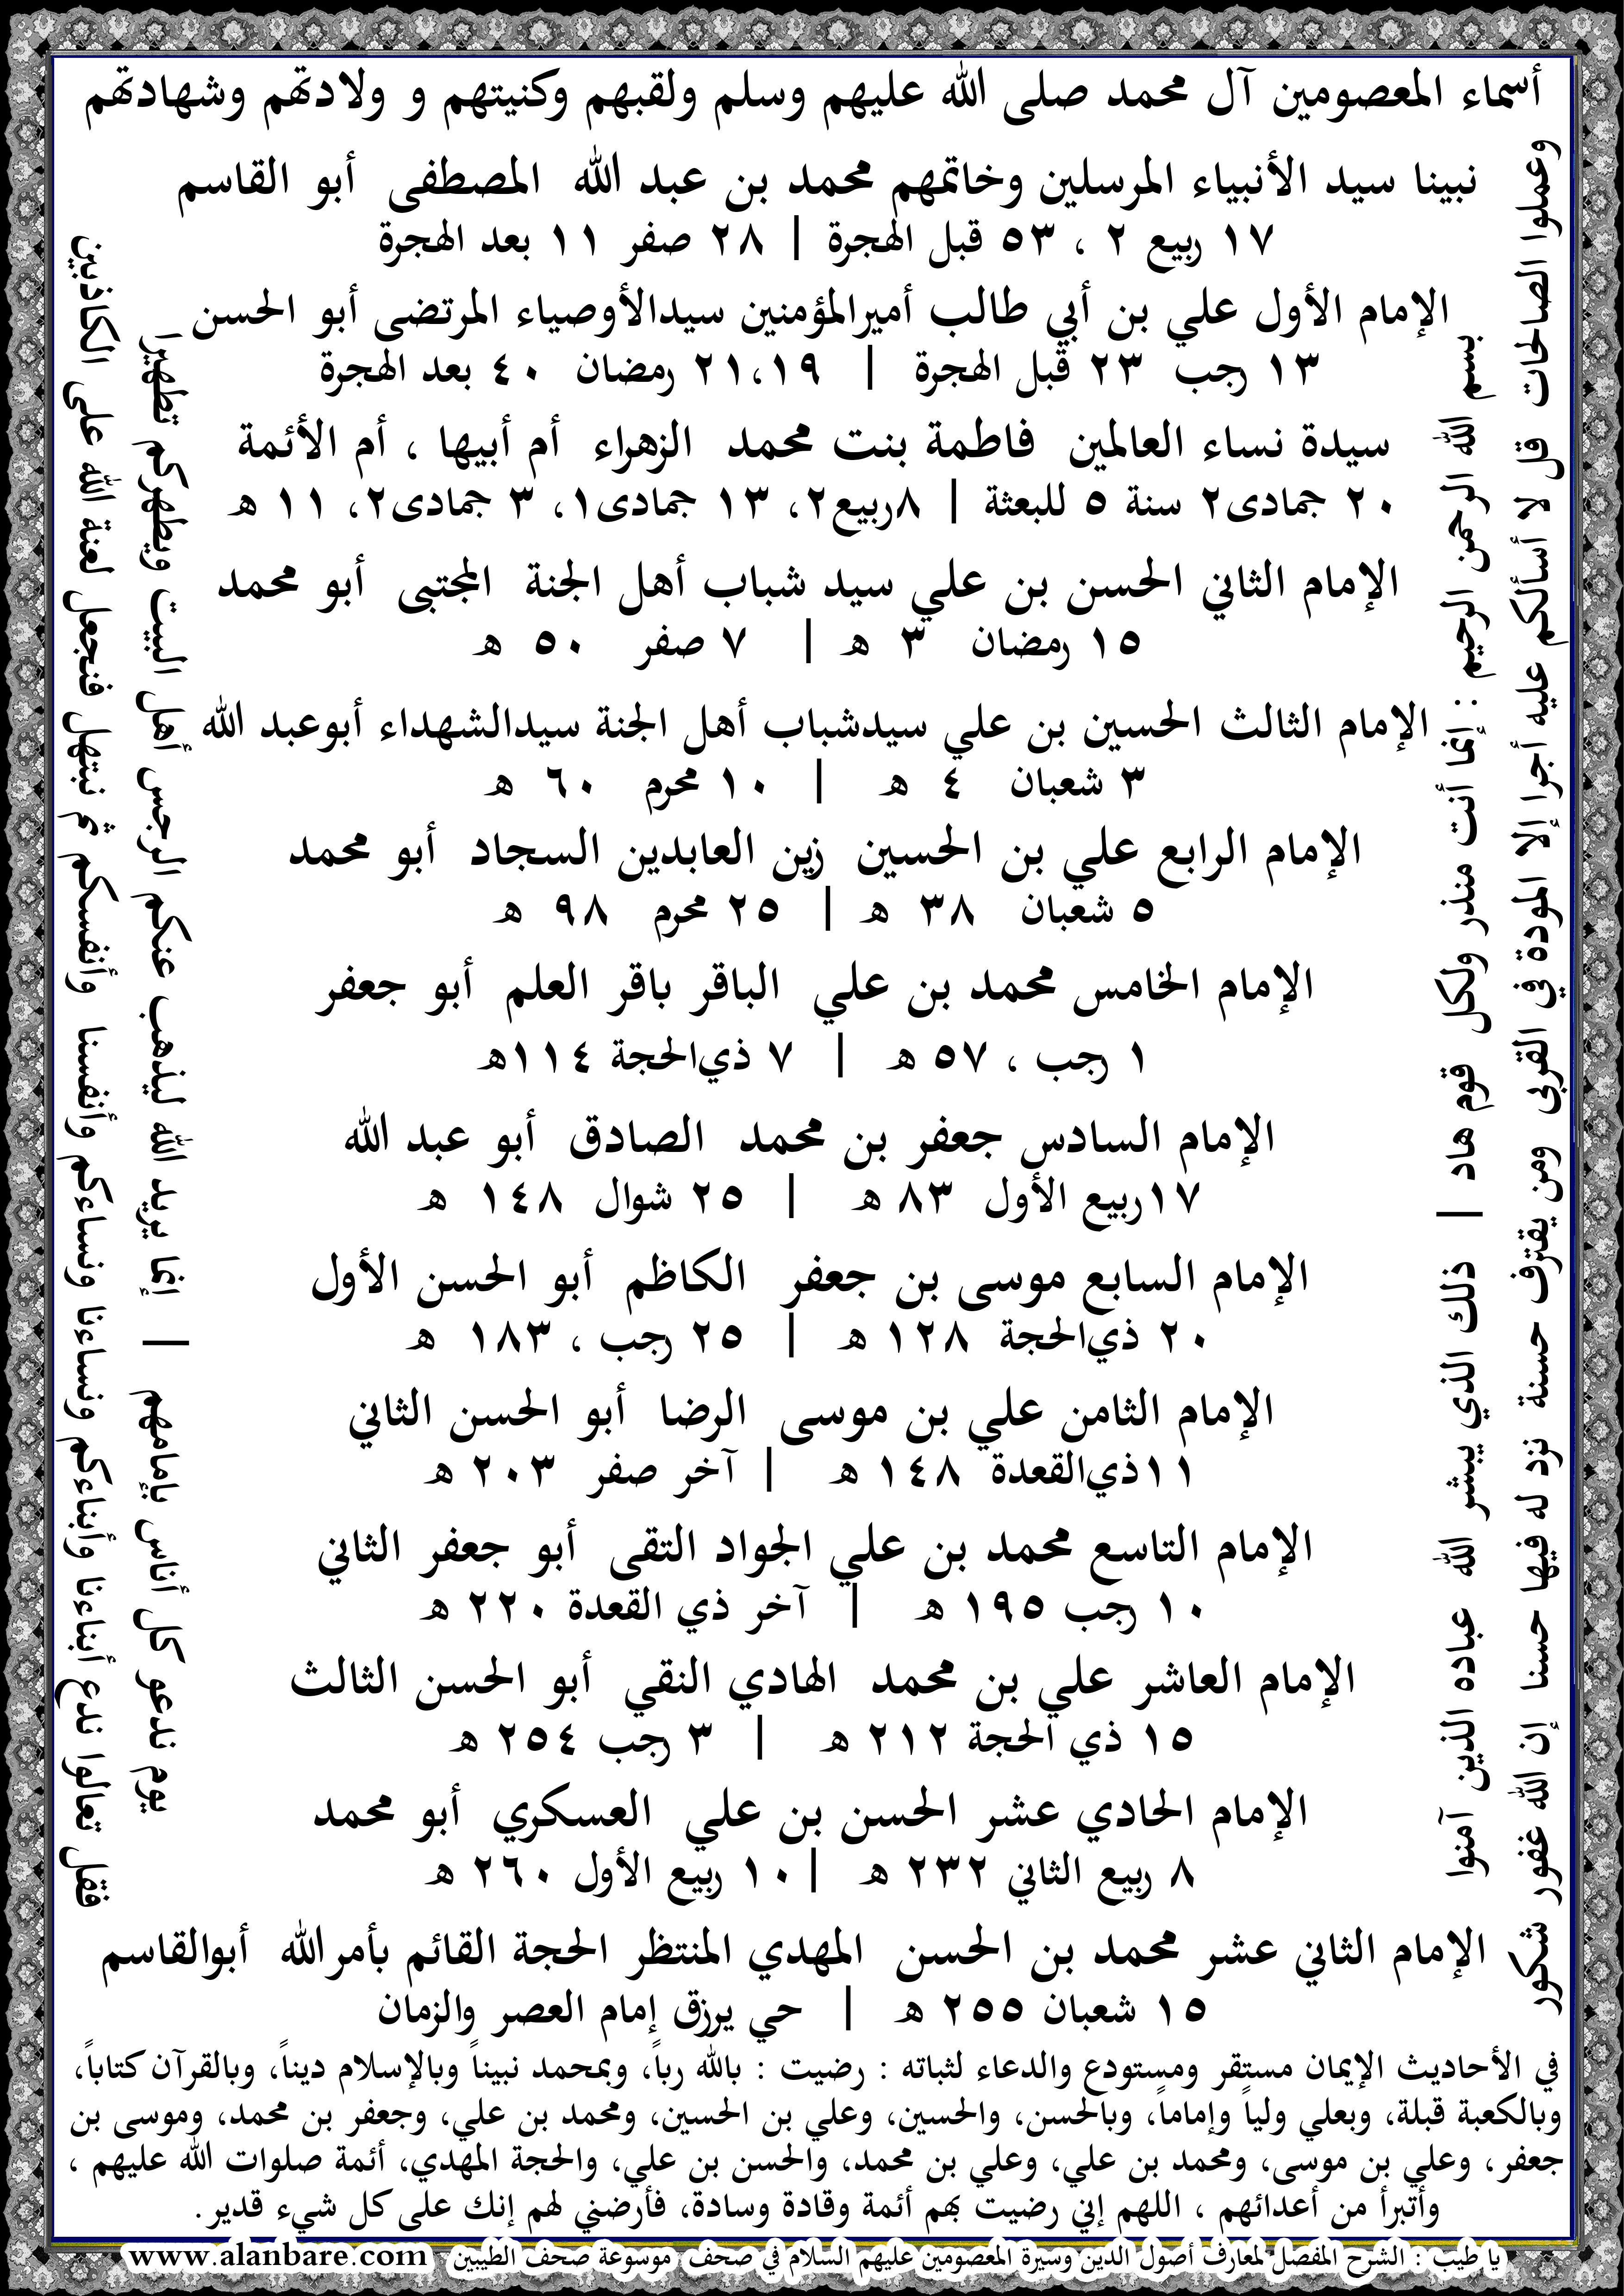 أسماء المعصومين آل محمد صلى الله عليهم وسلم ولقبهم وكنيتهم و ولادتهم وشهادتهم
نبينا سيد الأنبياء المرسلين وخاتمهم محمد بن عبد الله المصطفى أبو القاسم
١٧ ربيع ٢ ، ٥٣ قبل الهجرة | ٢٨ صفر ١١ بعد الهجرة
الإمام الأول علي بن أبي طالب أميرالمؤمنين سيدالأوصياء المرتضى أبو الحسن
١٣ رجب ٢٣ قبل الهجرة | ٢١،١٩ رمضان ٤٠ بعد الهجرة
سيدة نساء العالمين فاطمة بنت محمد الزهراء أم أبيها ، أم الأئمة
٢٠ جمادى٢ سنة ٥ للبعثة | ٨ربيع٢، ١٣ جمادى١، ٣ جمادى٢، ١١ ه
الإمام الثاني الحسن بن علي سيد شباب أهل الجنة المجتبى أبو محمد
١٥ رمضان ٣ ه | ٧ صفر ٥٠ ه
الإمام الثالث الحسين بن علي سيدشباب أهل الجنة سيدالشهداء أبوعبد الله
٣ شعبان ٤ ه | ١٠ محرم ٦٠ ه
الإمام الرابع علي بن الحسين زين العابدين السجاد أبو محمد
٥ شعبان ٣٨ ه | ٢٥ محرم ٩٨ ه
الإمام الخامس محمد بن علي الباقر باقر العلم أبو جعفر
١ رجب ، ٥٧ ه | ٧ ذيالحجة ١١٤ه
الإمام السادس جعفر بن محمد الصادق أبو عبد الله
١٧ربيع الأول ٨٣ ه | ٢٥ شوال ١٤٨ ه
الإمام السابع موسى بن جعفر الكاظم أبو الحسن الأول
٢٠ ذيالحجة ١٢٨ ه | ٢٥ رجب ، ١٨٣ ه
الإمام الثامن علي بن موسى الرضا أبو الحسن الثاني
١١ذيالقعدة ١٤٨ ه | آخر صفر ٢٠٣ ه
الإمام التاسع محمد بن علي الجواد التقى أبو جعفر الثاني
١٠ رجب ١٩٥ ه | آخر ذي القعدة ٢٢٠ ه
الإمام العاشر علي بن محمد الهادي النقي أبو الحسن الثالث
١٥ ذي الحجة ٢١٢ ه | ٣ رجب ٢٥٤ ه
الإمام الحادي عشر الحسن بن علي العسكري أبو محمد
٨ ربيع الثاني ٢٣٢ ه | ١٠ ربيع الأول ٢٦٠ ه
الإمام الثاني عشر محمد بن الحسن المهدي المنتظر الحجة القائم بأمرالله أبوالقاسم
١٥ شعبان ٢٥٥ ه | حي يرزق إمام العصر والزمان
بسم الله الرحمن الرحيم : إنما أنت منذر ولكل قوم هاد | ذلك الذي يبشر الله عباده الذين آمنوا
وعملوا الصالحات قل لا أسألكم عليه أجرا إلا المودة في القربى ومن يقترف حسنة نزد له فيها حسنا إن الله غفور شكور
يوم ندعو كل أناس بإمامهم | إنما يريد الله ليذهب عنكم الرجس أهل البيت ويطهركم تطهيرا
فقل تعالوا ندع أبناءنا وأبناءكم ونساءنا ونساءكم وأنفسنا وأنفسكم ثم نبتهل فنجعل لعنة الله على الكاذبين
في الأحاديث الإيمان مستقر ومستودع والدعاء لثباته : رضيت : بالله رباً، وبمحمد نبيناً وبالإسلام ديناً، وبالقرآن كتاباً،
وبالكعبة قبلة، وبعلي ولياً وإماماً، وبالحسن، والحسين، وعلي بن الحسين، ومحمد بن علي، وجعفر بن محمد، وموسى بن
جعفر، وعلي بن موسى، ومحمد بن علي، وعلي بن محمد، والحسن بن علي، والحجة المهدي، أئمة صلوات الله عليهم ،
وأتبرأ من أعدائهم ، اللهم إني رضيت بهم أئمة وقادة وسادة، فأرضني لهم إنك على كل شيء قدير.
يا طيب : الشرح المفصل لمعارف أصول الدين وسيرة المعصومين عليهم السلام في صحف موسوعة صحف الطيبين www.alanbare.com